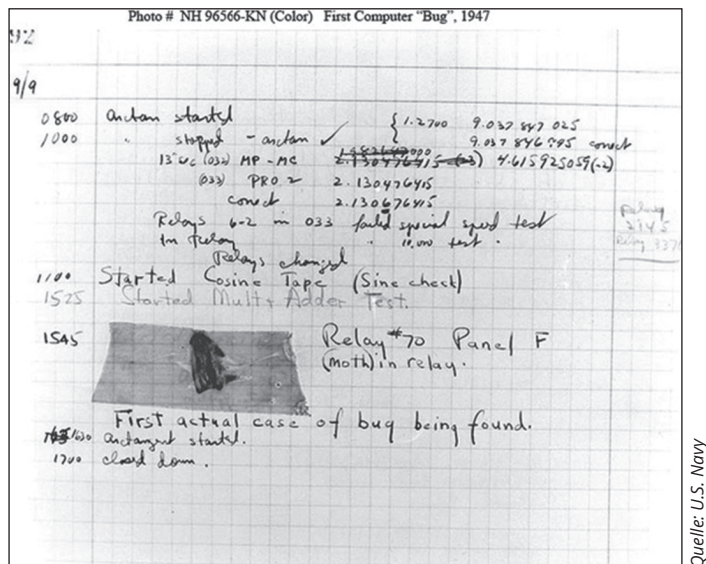 Photo # NH 96566-KN (Color) First Computer “Bug”, 1947
92
9/9
0800 Antan started
1000 " stopped - antan ✓ { 1.2700 9.037 847 025
9.037 846 995 conect
13"uc (033) MP - MC 2.130476415 (-3) 4.615925059(-2)
(033) PRO 2 2.130476415
conect 2.130676415
Relays 6-2 in 033 failed special speed test
in Relay " 10,000 test .
Relay
2145
Relay 3370
Relays changed
1100 Started Cosine Tape (Sine check)
1525 Started Mult + Adder Test.
1545 Relay #70 Panel F
(moth) in relay.
First actual case of bug being found.
1630 antangent started.
1700 closed down .
Quelle: U.S. Navy